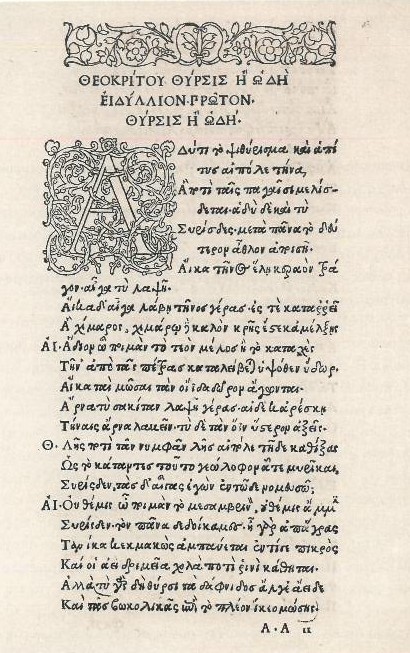 ΘΕΟΚΡΙΤΟΥ ΘΥΡΣΙΣ Ἢ ᾨΔΗ
ΕΙΔΥΛΛΙΟΝ ΠΡΩΤΟΝ·
ΘΥΡΣΙΣ Ἢ ᾨΔΗ·
Αδύ τι τὸ ψιθύρισμα καὶ ἁ πί
τυς αἰπόλε τήνα,
Ἃ ποτὶ ταῖς παγαῖσι μελίσ-
δεται. ἁδὺ δὲ καὶ τὺ
Συρίσδες. μετὰ πᾶνα τὸ δεύ
τερον ἆθλον ἀποισῇ·
Αἴκα τῆνος ἕλῃ κεραὸν τρά
γον. αἶγα τὺ λαψῇ.
Αἴκα δ' αἶγα λάβῃ τῆνος γέρας. ἐς τὲ καταρρεῖ
Ἁ χίμαρος. χιμάρῳ δὲ καλὸν κρῆς ἔς τε κ' ἀμέλξῃς
ΑΙ. Ἅδιον ὦ ποιμὰν τὸ τεὸν μέλος ἢ τὸ καταχὲς
Τῆν' ἀπὸ τᾶς πέτρας καταλείβεται ὑψόθεν ὕδωρ.
Αἴκα ταὶ μῶσαι τὰν οἴιδα δῶρον ἄγωνται.
Ἄρνα τὺ σακίταν λαψῇ γέρας. αἰ δέ κ' ἀρέσκῃ
Τήναις ἄρνα λαβεῖν. τὺ δὲ τὰν ὄιν ὕστερον ἀξεῖς.
Θ. Λῇς ποτὶ τᾶν νυμφᾶν λῇς αἰπόλε τῇδε καθίξας
Ὡς τὸ κάταντες τοῦτο γεώλοφον ἅτε μυρῖκαι.
Συρίσδεν. τὰς δ' αἶγας ἐγὼν ἐν τῷδε νομευσῶ.
ΑΙ. Οὐ θέμις ὦ ποιμὰν τὸ μεσαμβρινὸν. οὐ θέμις ἄμμιν
Συρίσδεν. τὸν πᾶνα δεδοίκαμες. ἦ γὰρ ἀπ' ἄγρας
Τανίκα κεκμακὼς ἀμπαύεται ἐντὶ γε πικρὸς
Καί οἱ ἀεὶ δριμεῖα χολὰ ποτὶ ῥινὶ κάθηται.
Ἀλλὰ τὺ γὰρ δὴ θύρσι τὰ δάφνιδος ἄλγε' ἄειδε
Καὶ τᾶς βωκολικᾶς ἐπὶ τὸ πλέον ἵκεο μώσης.
Α.Α ii